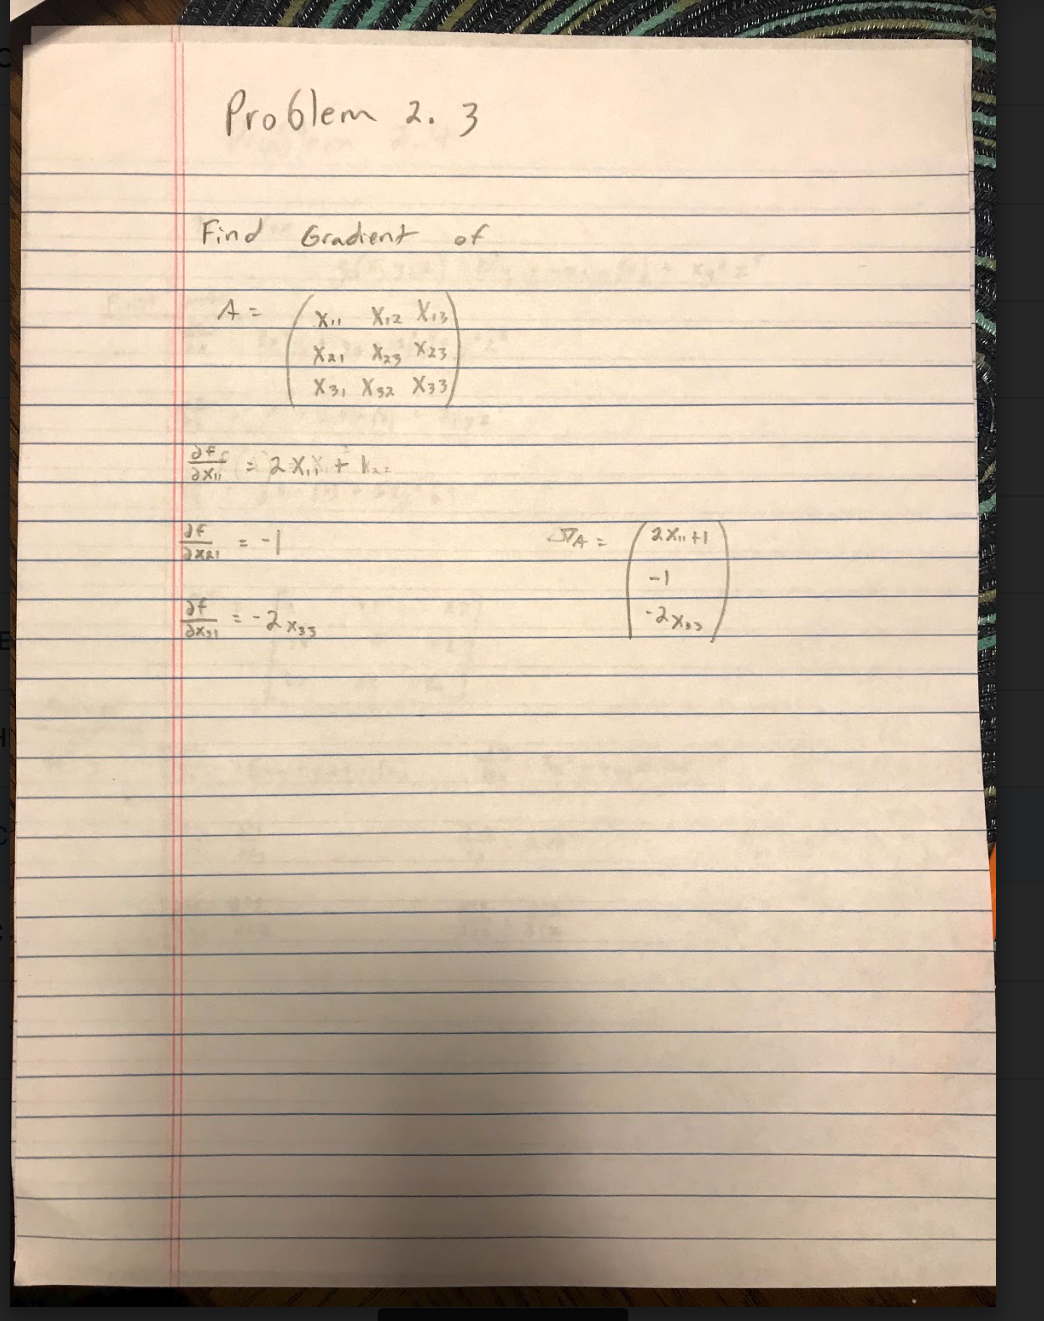 Problem 2.3
Find Gradient of
A = ( X11 X12 X13
X21 X23 X23
X31 X32 X33 )
∂f/∂x11 = 2X11 +
∂f/∂x21 = -1
∇A = ( 2X11 +1
-1
-2X33 )
∂f/∂x31 = -2x33